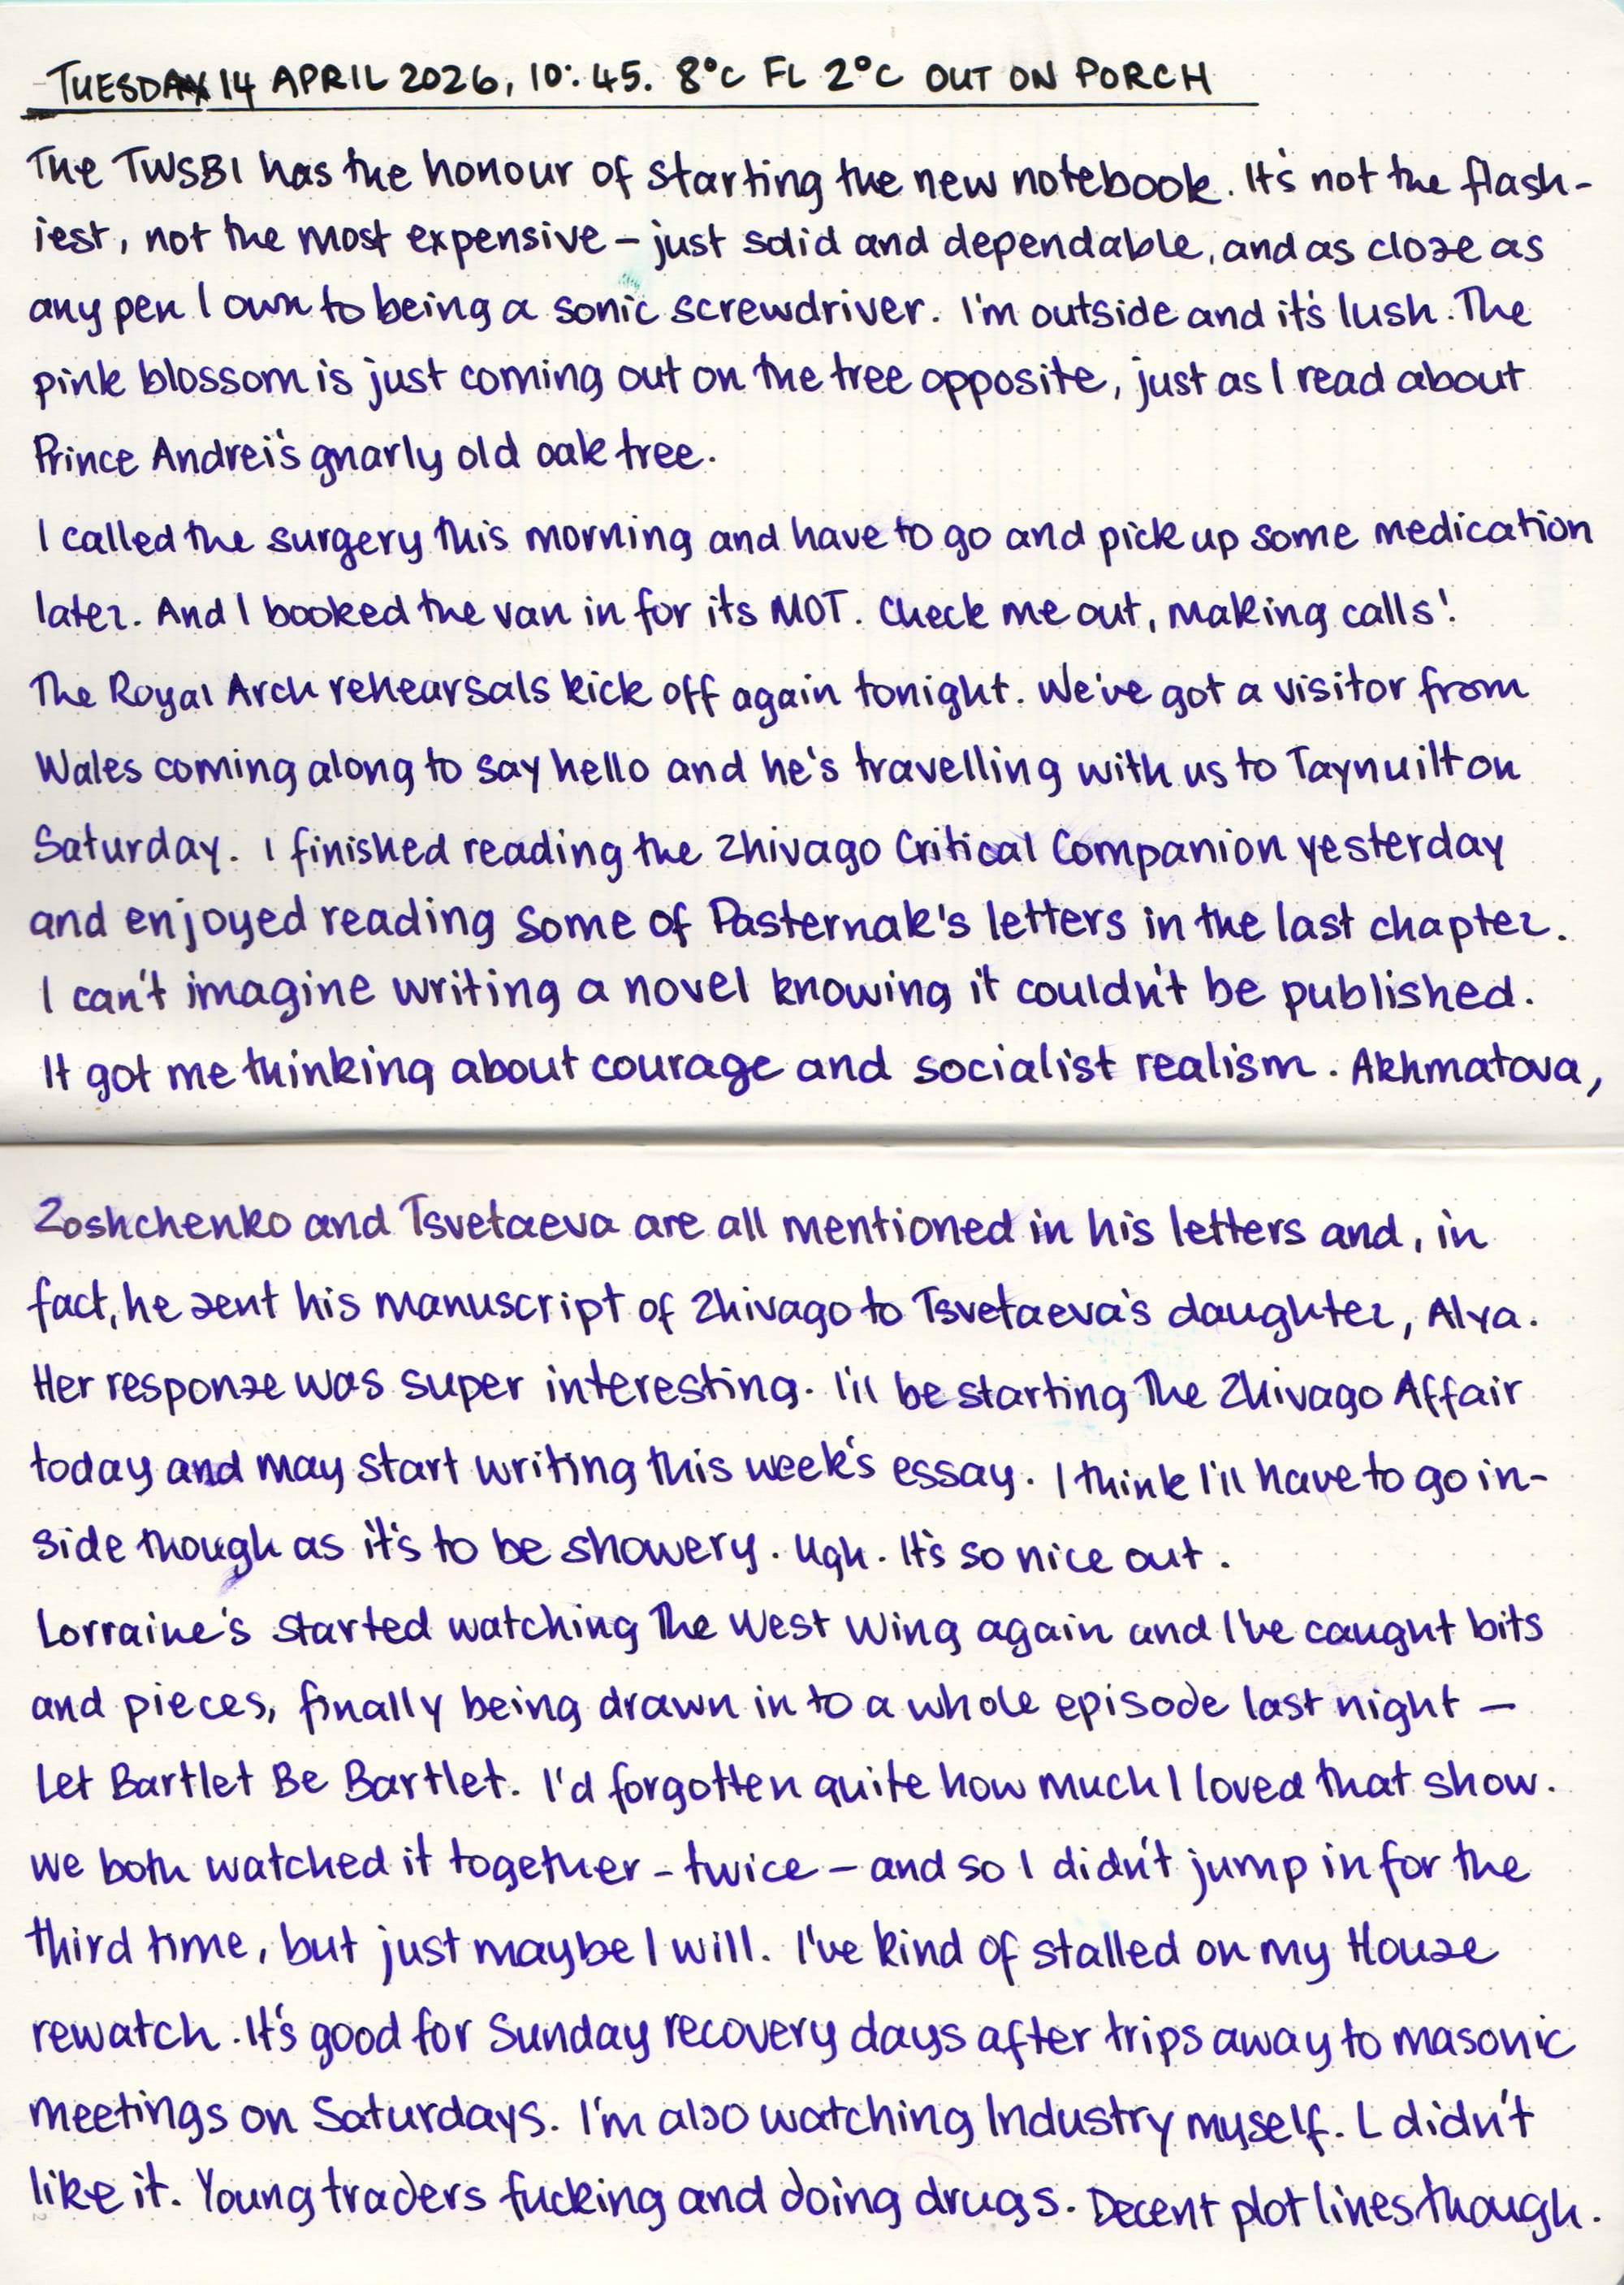 TUESDAY 14 APRIL 2026, 10:45. 8°C FL 2°C OUT ON PORCH
The TWSBI has the honour of starting the new notebook. It's not the flash-
iest, not the most expensive – just solid and dependable, and as close as
any pen I own to being a sonic screwdriver. I'm outside and it's lush. The
pink blossom is just coming out on the tree opposite, just as I read about
Prince Andrei's gnarly old oak tree.
I called the surgery this morning and have to go and pick up some medication
later. And I booked the van in for its MOT. Check me out, making calls!
The Royal Arch rehearsals kick off again tonight. We've got a visitor from
Wales coming along to say hello and he's travelling with us to Taynuilt on
Saturday. I finished reading the Zhivago Critical Companion yesterday
and enjoyed reading some of Pasternak's letters in the last chapter.
I can't imagine writing a novel knowing it couldn't be published.
It got me thinking about courage and socialist realism. Akhmatova,
Zoshchenko and Tsvetaeva are all mentioned in his letters and, in
fact, he sent his manuscript of Zhivago to Tsvetaeva's daughter, Alya.
Her response was super interesting. I'll be starting The Zhivago Affair
today and may start writing this week's essay. I think I'll have to go in-
side though as it's to be showery. Ugh. It's so nice out.
Lorraine's started watching The West Wing again and I've caught bits
and pieces, finally being drawn in to a whole episode last night –
Let Bartlet Be Bartlet. I'd forgotten quite how much I loved that show.
We both watched it together – twice – and so I didn't jump in for the
third time, but just maybe I will. I've kind of stalled on my House
rewatch. It's good for Sunday recovery days after trips away to masonic
meetings on Saturdays. I'm also watching Industry myself. L didn't
like it. Young traders fucking and doing drugs. Decent plot lines though.
2